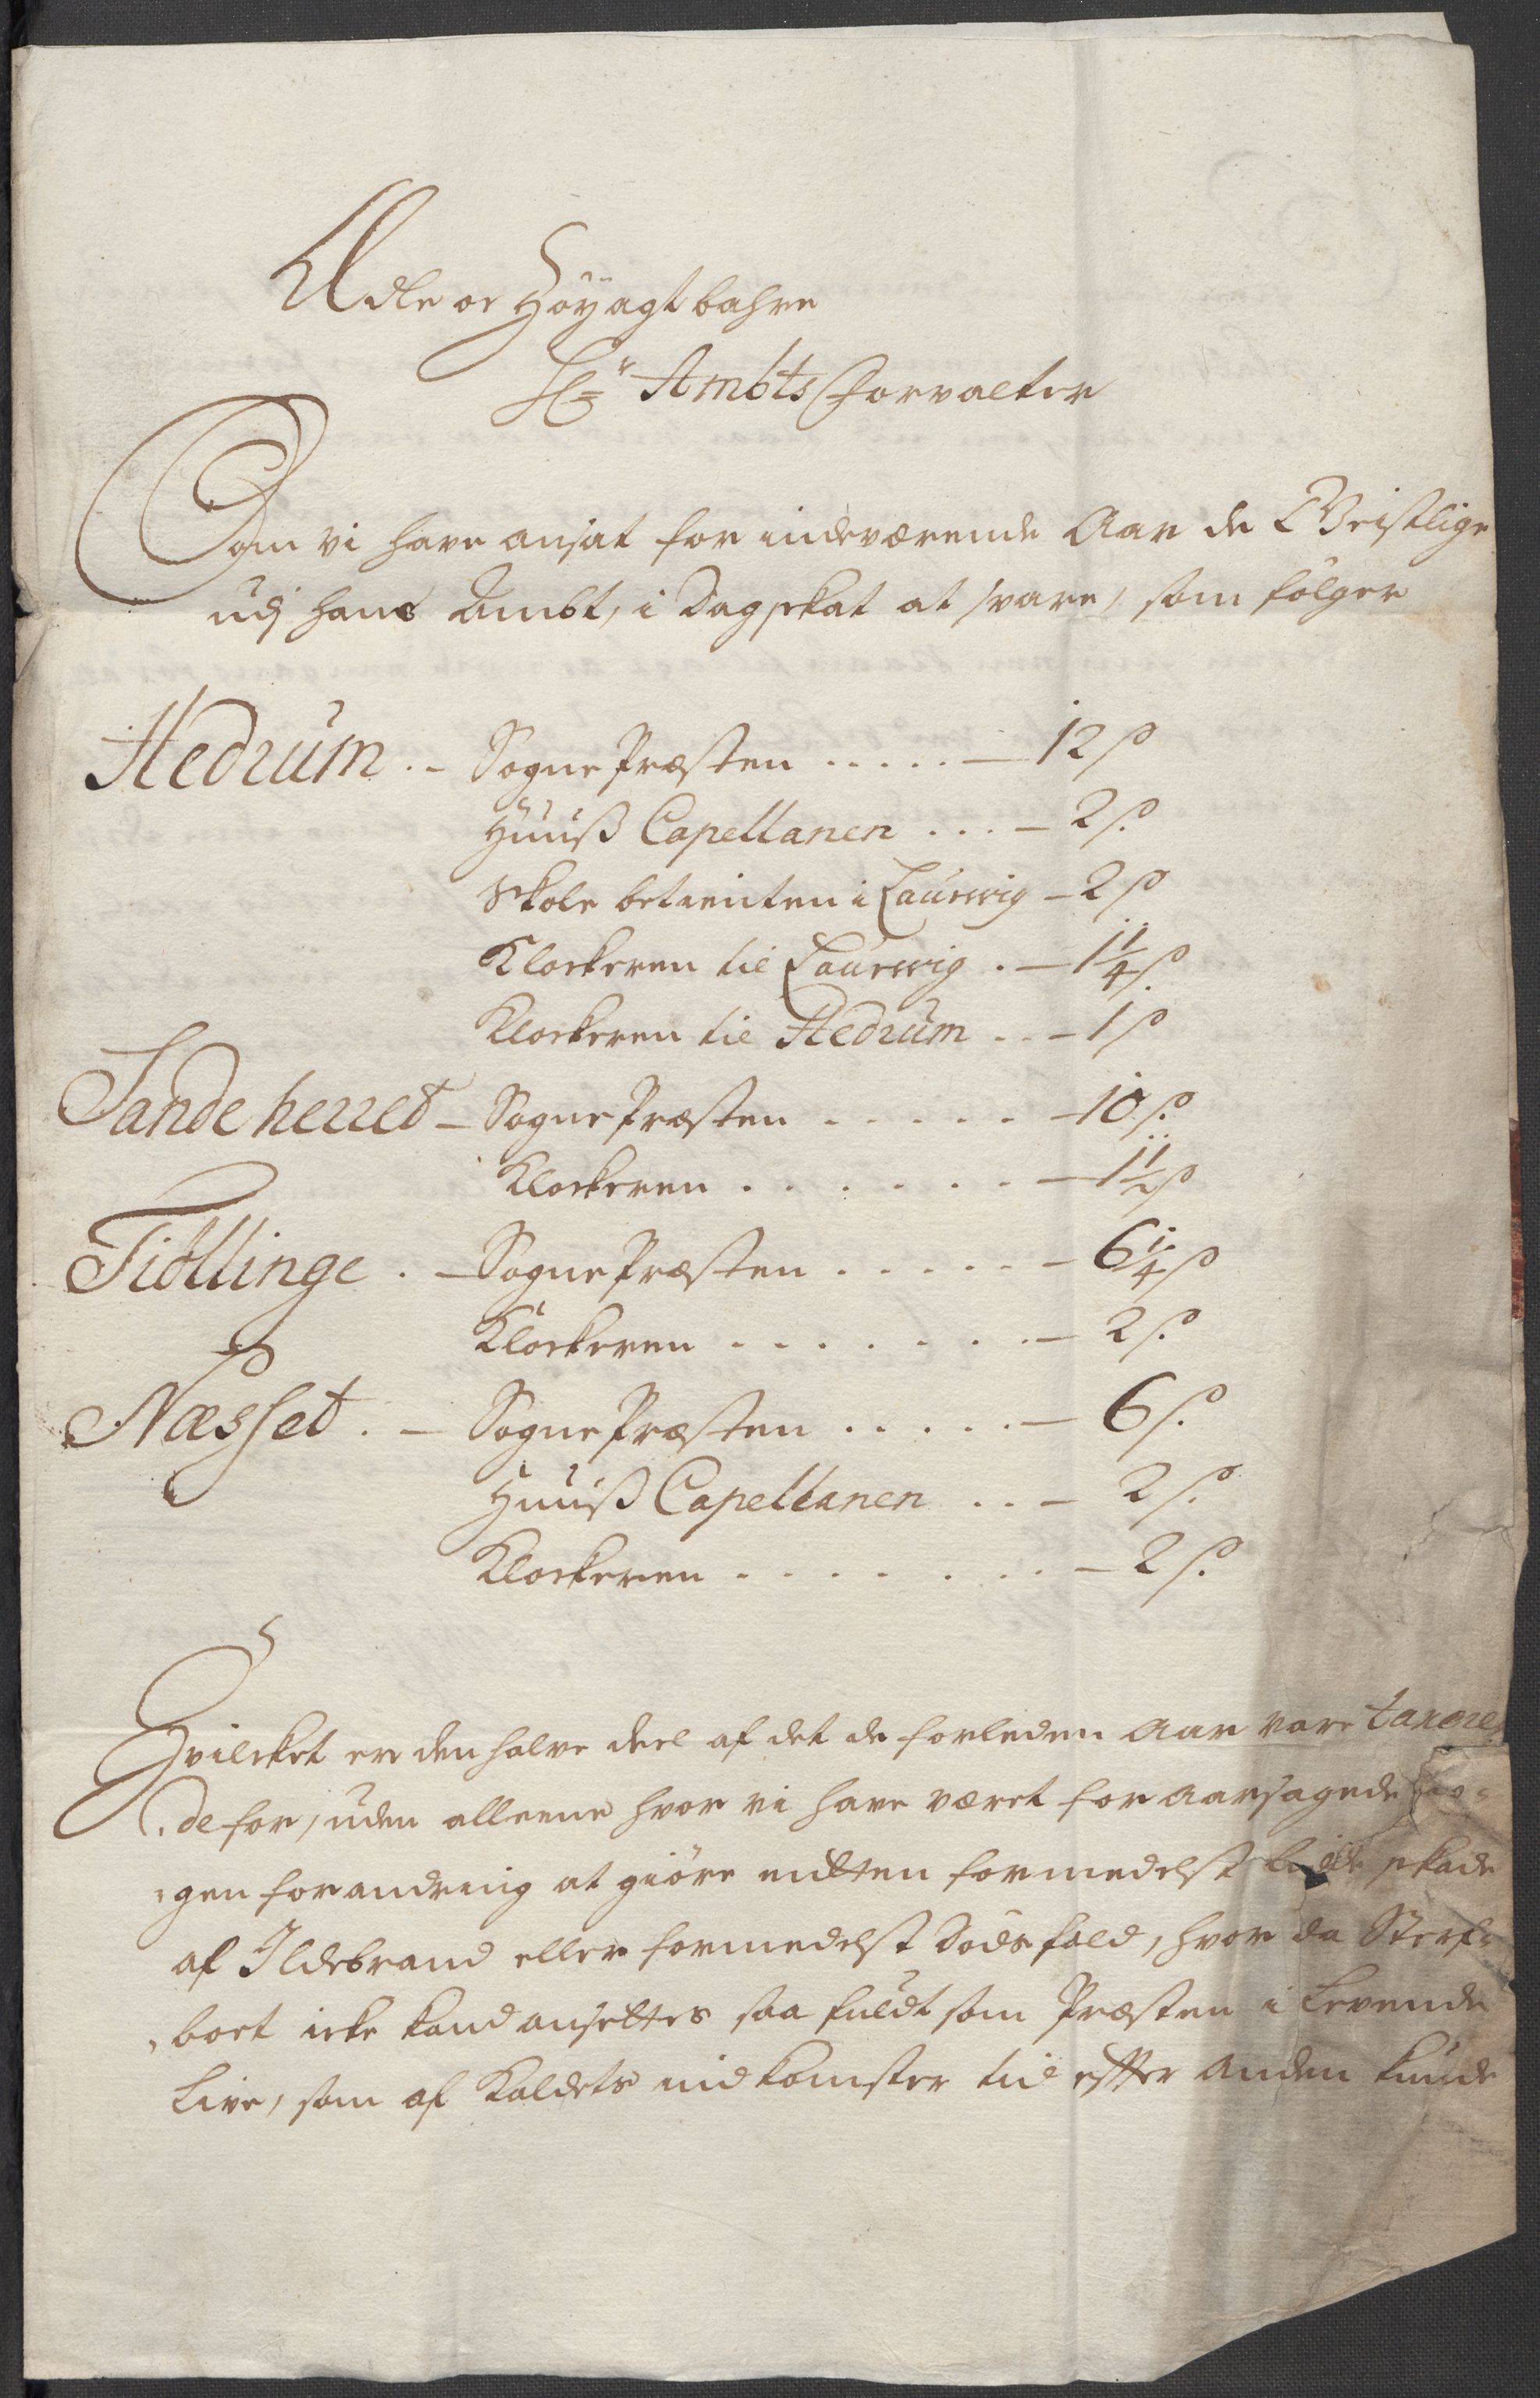 Ædle oc Höyagtbahre
Hr Ambts Forvalter
Som vi have ansat for indeværende Aar de Geistlige
udj hans Ambt, i Dagskat at svare, som fölger
Hedrum . - SognePræsten ..... — 12 ß
Huuß Capellanen ... — 2 ß.
Skole betienten i Laurwig — 2 ß
Klockeren til Laurwig . — 1 1/4 ß.
Klockeren til Hedrum .. — 1 ß
Sandeherred — SognePræsten ..... — 10 ß.
Klockeren ...... — 1 1/2 ß
Tiöllinge . — SognePræsten ..... — 6 1/4 ß
Klockeren ....... — 2 ß.
Næsset . — SognePræsten ..... — 6 ß.
Huuß Capellanen .. — 2 ß.
Klockeren ....... — 2 ß.
Hvilcket er den halve deel af det de forleden Aar vare taxere-
de for, uden alleene hvor vi have været foraarsagede no-
gen forandring at giöre enten formedelst skade
af Ildebrand eller formedelst Dödsfald, hvor da Sterf-
boet icke kand ansettes saa fuldt som Præsten i Levende
Live, som af Kaldets indkomster tid efter anden kunde